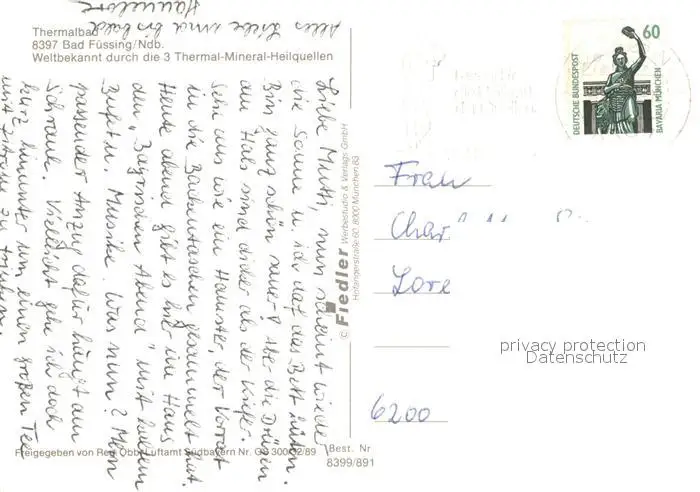 Thermalbad
8397 Bad Füssing/Ndb.
Weltbekannt durch die 3 Thermal-Mineral-Heilquellen
Liebe Muth, nun scheint wieder
die Sonne u. ich darf das Bett hüten.
Bin ganz schön sauer! Aber die Drüsen
am Hals sind dicker als der Kiefer.
Sehe aus wie ein Hamster, der Vorrat
in die Backentaschen gesammelt hat.
Heute abend gibt es hier im Haus
den „Bayrischen Abend" mit kaltem
Bufett u. Musike. Was nun? Mein
passender Anzug dafür hängt am
Schrank. Vielleicht gehe ich doch
kurz hinunter um einen großen Tee
mit Zitrone zu trinken.
Alles Liebe und bis bald
Hannelore
© Fiedler Werbestudio & Verlags GmbH
Hofangerstraße 60, 8000 München 83
DEUTSCHE BUNDESPOST
60
BAVARIA MÜNCHEN
Frau
Char
Lore
6200
privacy protection
Datenschutz
Freigegeben von Reg. Obb. Luftamt Südbayern Nr. GS 300/ /89
Best. Nr
8399/891